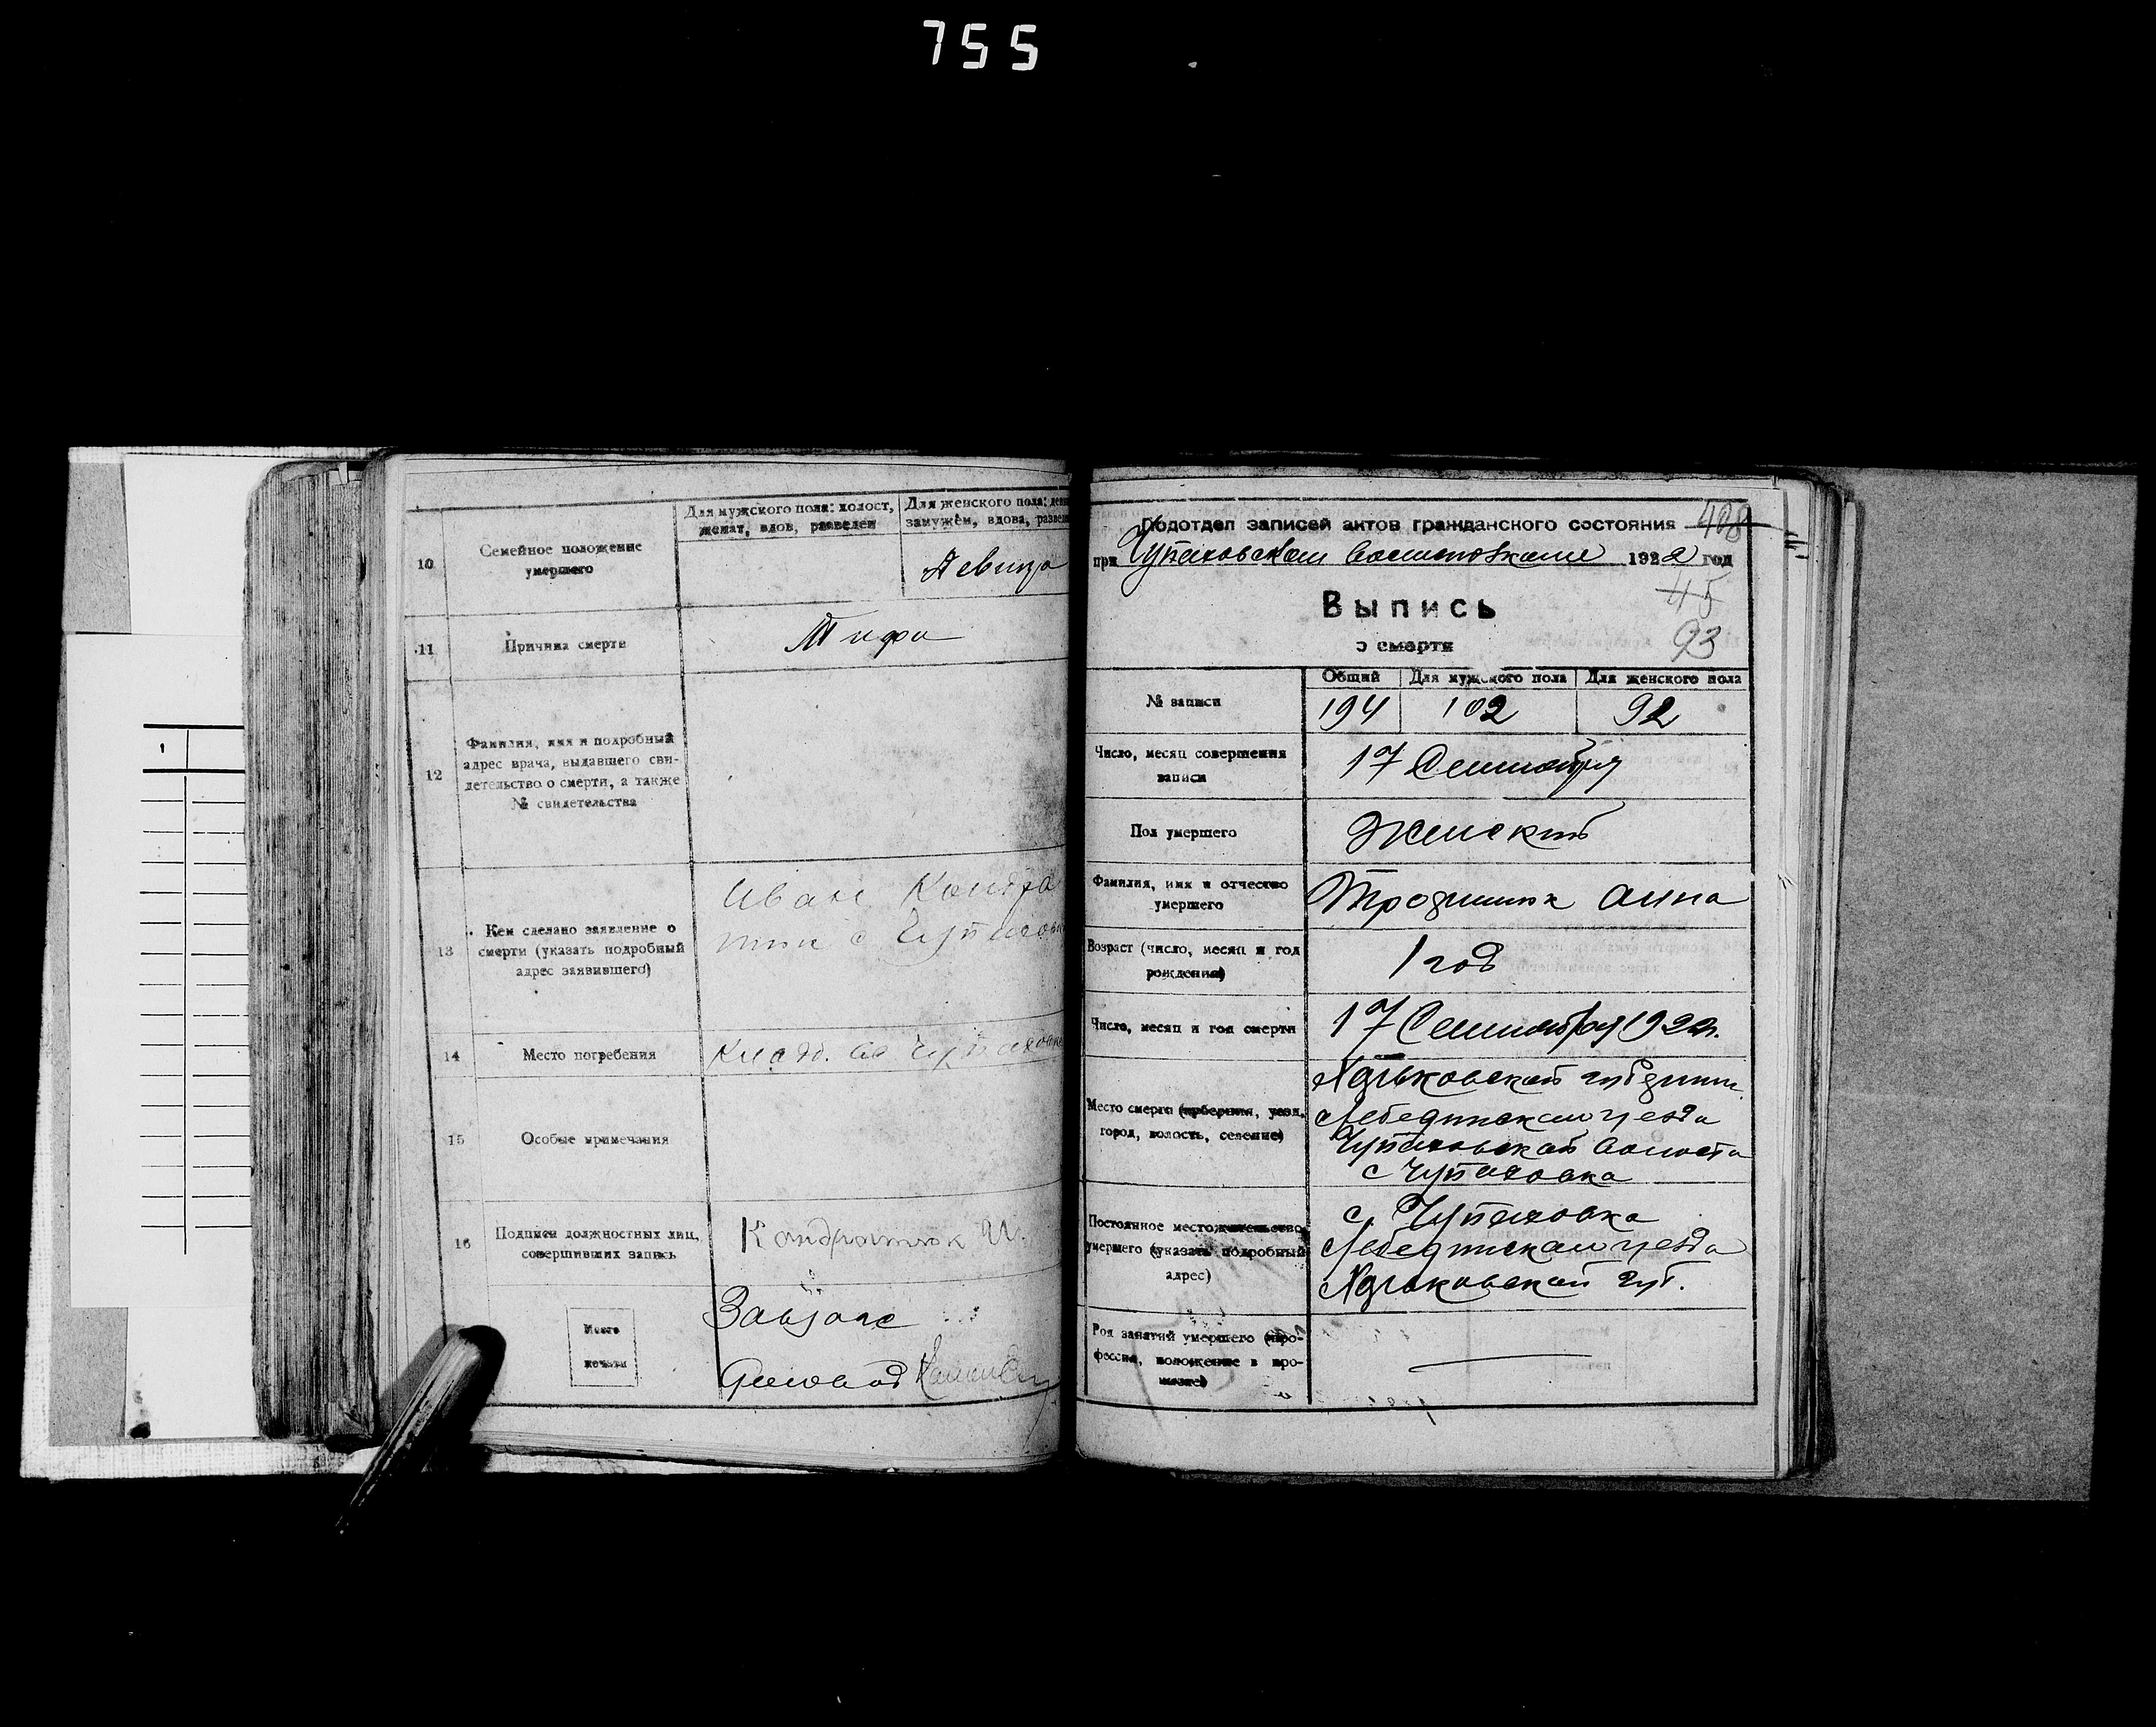 755
Для мужского пола: холост, женат, вдов, разведен
Для женского пола:
замужем, вдова,
10 Семейное положение умершего
Девица
11 Причина смерти
Тиф
12 Фамилия, имя и подробный адрес врача, выдавшего сви-
детельство о смерти, а также № свидетельства
13 Кем сделано заявление о смерти (указать подробный адрес заявившего)
Иван Кондра
тюк с Чупаховк
14 Место погребения
Кладб. Чупаховка
15 Особые примечания
16 Подписи должностных лиц, совершивших запись
Кондратюк И.
Место печати
Завзагс
408
Подотдел записей актов гражданского состояния
при Чупаховском Волисполкоме 1922 год
45
Выпись
93
о смерти
Общий Для мужского пола Для женского пола
№ записи
194 102 92
Число, месяц совершения записи
17 Сентября
Пол умершего
Женский
Фамилия, имя и отчество умершего
Анна
Возраст (число, месяц и год рождения)
1 год
Число, месяц и год смерти
17 Сентября 1922г.
Место смерти (губерния, уезд, город, волость, селение)
Харьковской губернии
Лебединского уезда
Чупаховской волости
с Чупаховка
Постоянное местожительство умершего (указать подробный адрес)
с. Чупаховка
Лебединского уезда
Харьковской губ.
Род занятий умершего (про-
фессия, положение в про-
мысле)